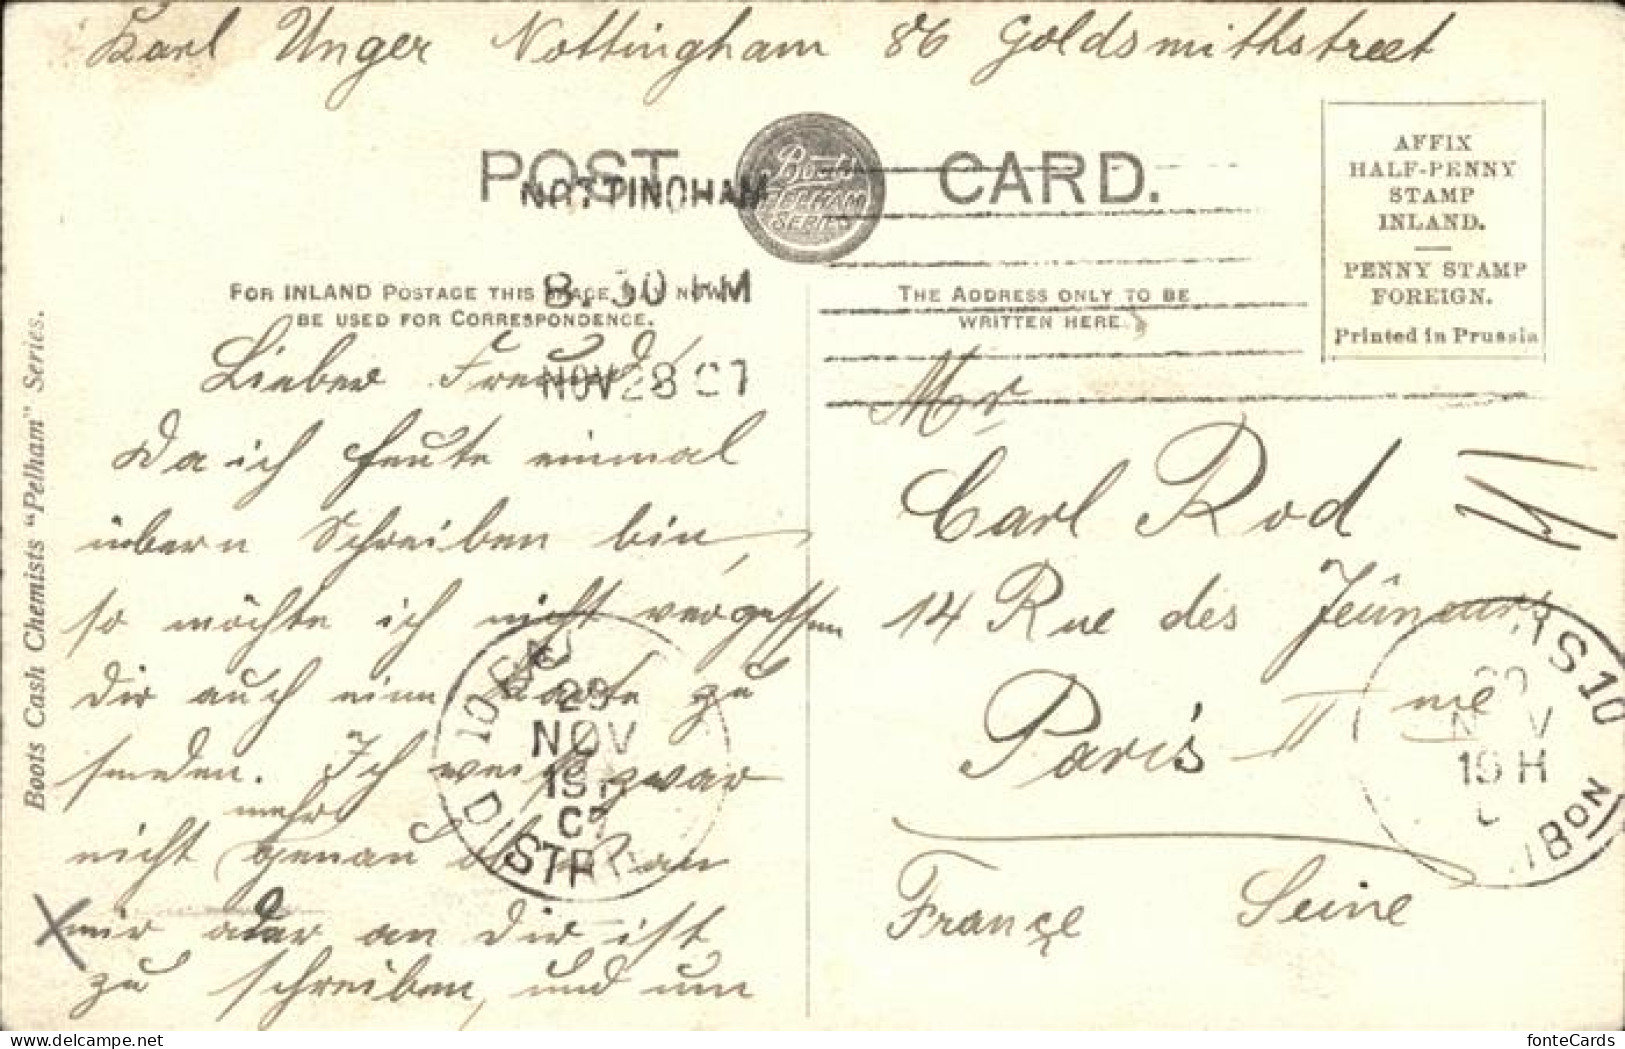 Karl Unger Nottingham 86 Goldsmithstreet
POST CARD.
Boots
PELHAM
SERIES
NOTTINGHAM
8. 30 PM
NOV 28 07
AFFIX
HALF-PENNY
STAMP
INLAND.
PENNY STAMP
FOREIGN.
Printed in Prussia
FOR INLAND POSTAGE THIS SPACE MAY NOW
BE USED FOR CORRESPONDENCE.
THE ADDRESS ONLY TO BE
WRITTEN HERE
Boots Cash Chemists "Pelham" Series.
Lieber Freund!
Da ich heute einmal
übern Schreiben bin,
so möchte ich nicht vergessen
dir auch eine Karte zu
senden. Ich weiß zwar
mehr
nicht genau ob es an
mir oder an Dir ist
zu schreiben, und um
29
NOV
07
DISTR
Mr
Carl Rod
14 Rue des Jeûneurs
Paris II me
France Seine
NOV
19 H
fonteCards
www.delcampe.net